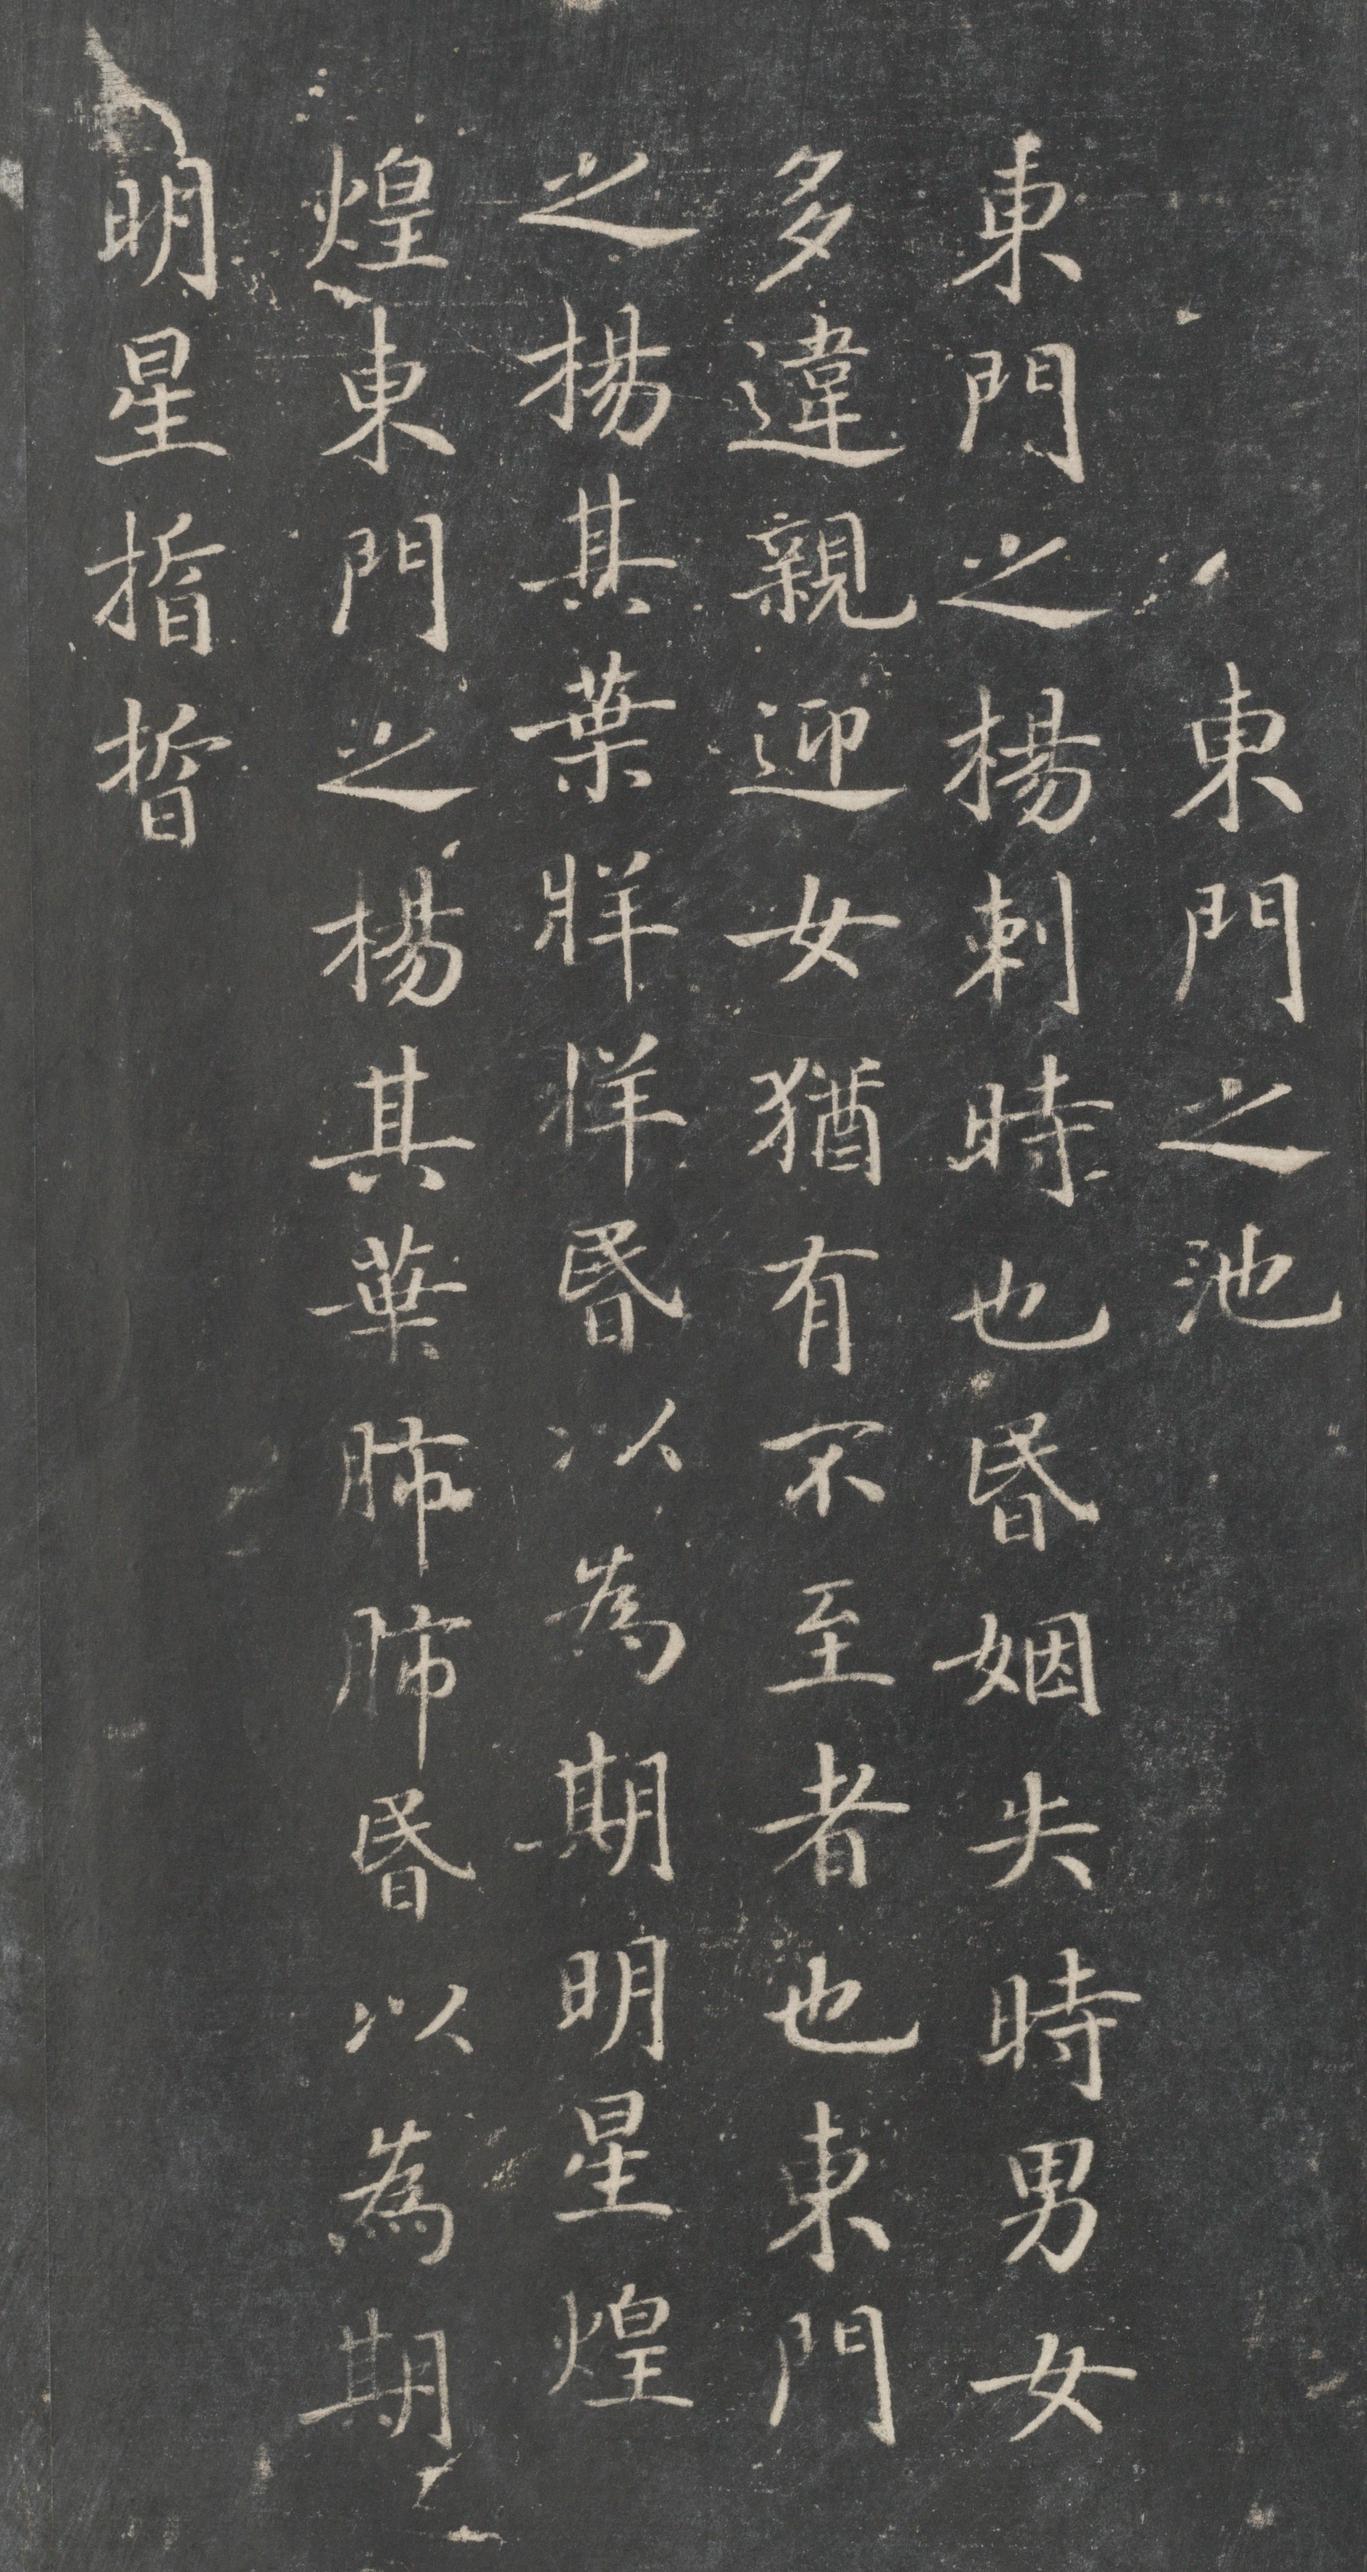 東門之池
東門之楊刺時也昬姻失時男女
多違親迎女猶有不至者也東門
之楊其葉牂牂昬以為期明星煌
煌東門之楊其葉肺肺昬以為期
明星晢晢